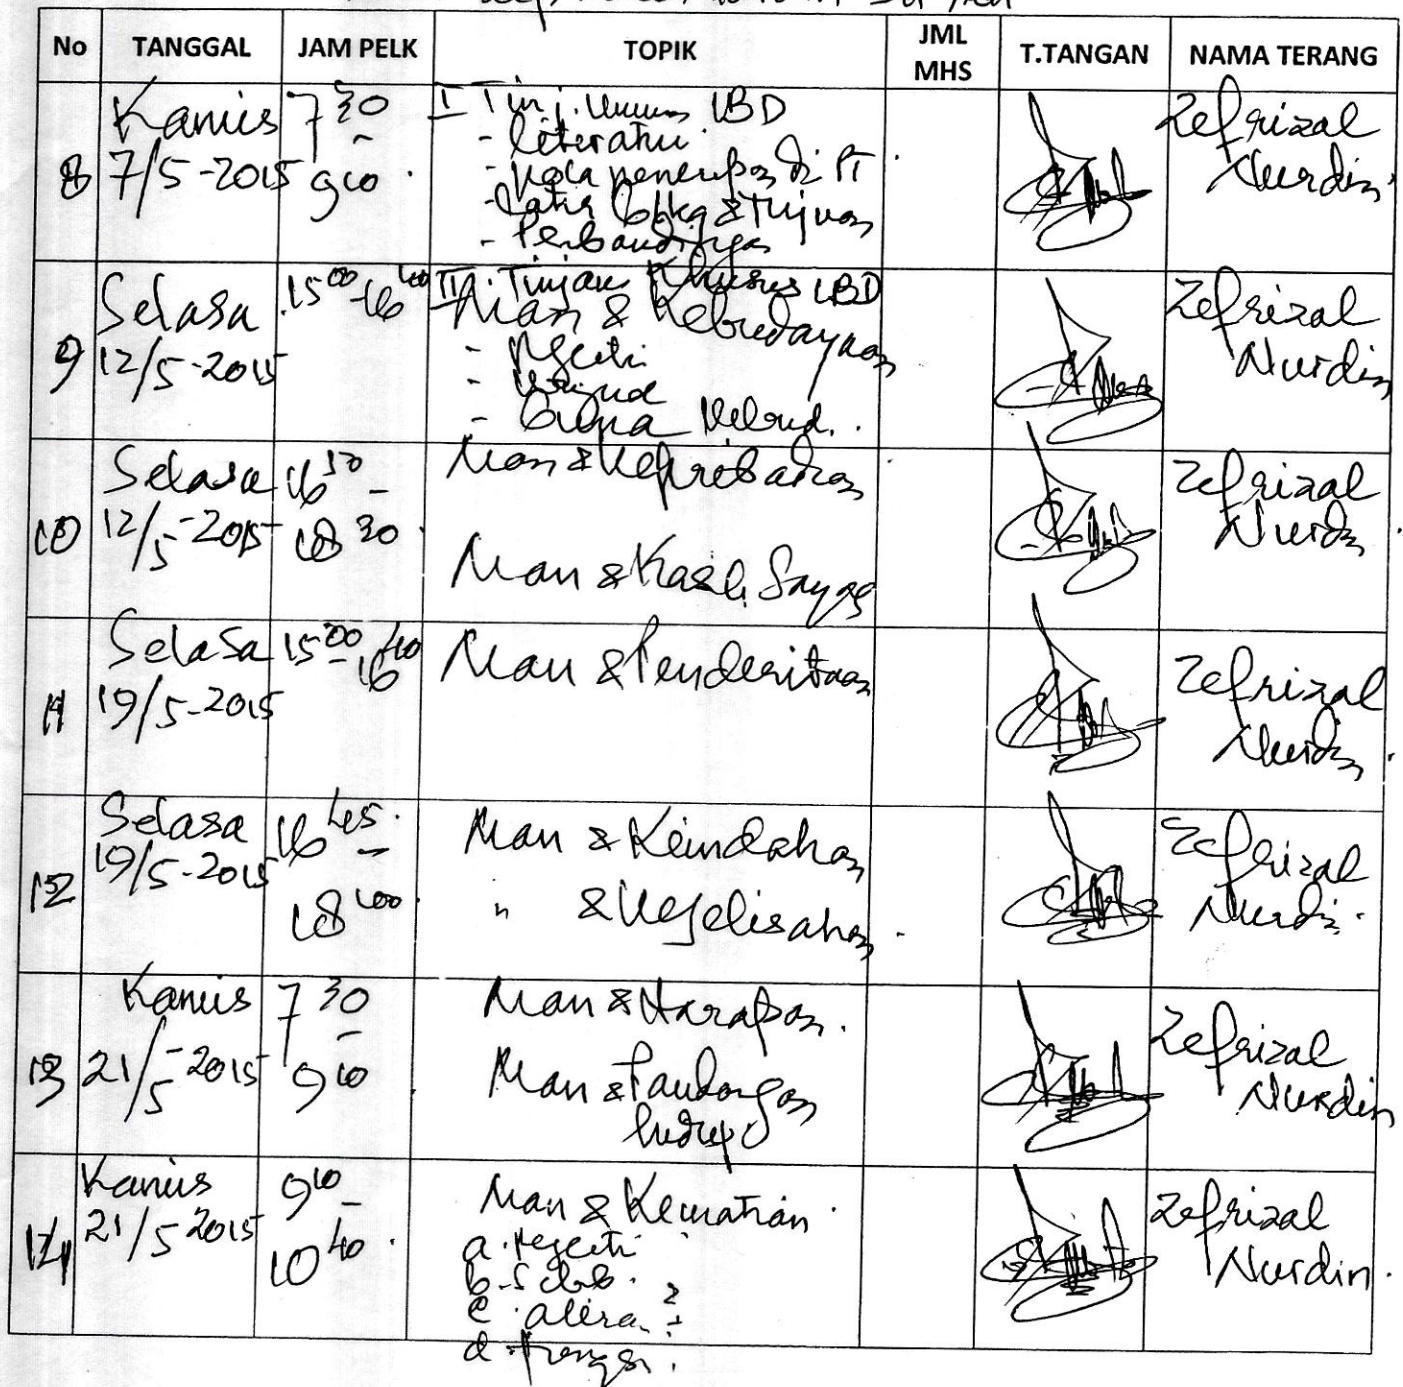 No TANGGAL JAM PELK TOPIK JML MHS T.TANGAN NAMA TERANG
8 Kamis 7/5-2015 7 30 - 9 10 I Tinj. Umum IBD
- literatur
- pola penerapan di PT
- Latar blkg & Tujuan
- Perbandingan
Zefrizal Nurdin
9 Selasa 12/5-2015 15 00 - 16 40 II. Tinjauan Khusus IBD
Man & Kebudayaan
- Wujud
- Kebud.
Zefrizal Nurdin
10 Selasa 12/5-2015 16 50 - 18 30 Man & Kepribadian
Man & Kasih Sayang
Zefrizal Nurdin
11 Selasa 19/5-2015 15 00 - 16 40 Man & Penderitaan
Zefrizal Nurdin
12 Selasa 19/5-2015 16 45 - 18 00 Man & Keindahan
" & Kegelisahan
Zefrizal Nurdin
13 Kamis 21/5-2015 7 30 - 9 10 Man & Harapan.
Man & Pandangan
hidup
Zefrizal Nurdin
14 Kamis 21/5 2015 9 10 - 10 40 Man & Kematian
a.
b. sebab.
c. aliran
d. fungsi.
Zefrizal Nurdin.